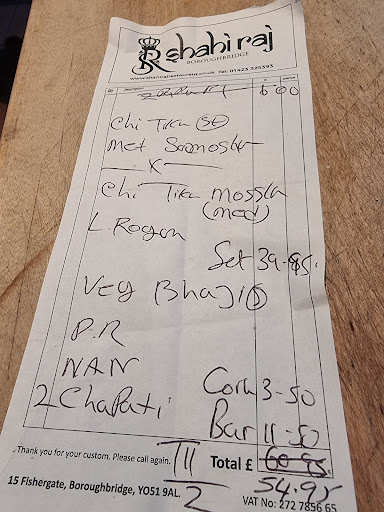 shahi raj
BOROUGHBRIDGE
www.shahirajrestaurant.co.uk Tel: 01423 325393
Qty Description £ pence
6 00
Chi Tika (St)
Met Somosa
X
Chi Tika Mossla
(med)
L. Rogon
Set 39-95.
Veg Bhaji (S)
P.R
NAN
Cork 3-50
2 Chapati
Bar 11-50
Thank you for your custom. Please call again.
T11
2
Total £ 60-95.
54.95
15 Fishergate, Boroughbridge, YO51 9AL.
VAT No: 272 7856 65